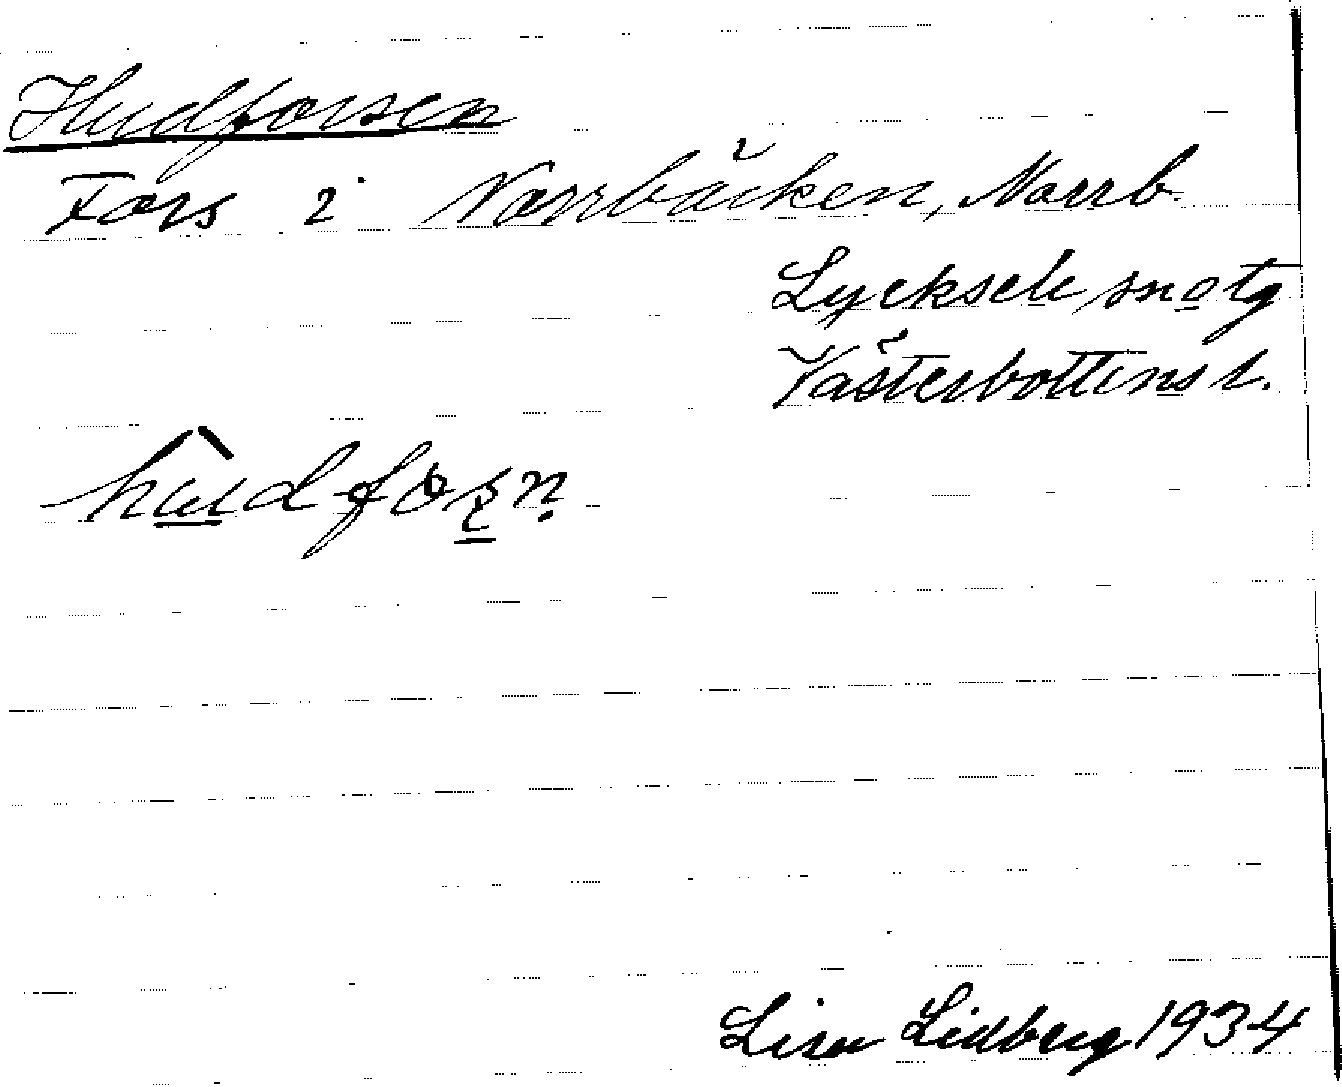 Hudforsen
Fors i Norrbäcken, Norrb.
Lycksele snotg
Västerbottens l.
Lisa Lidberg 1934